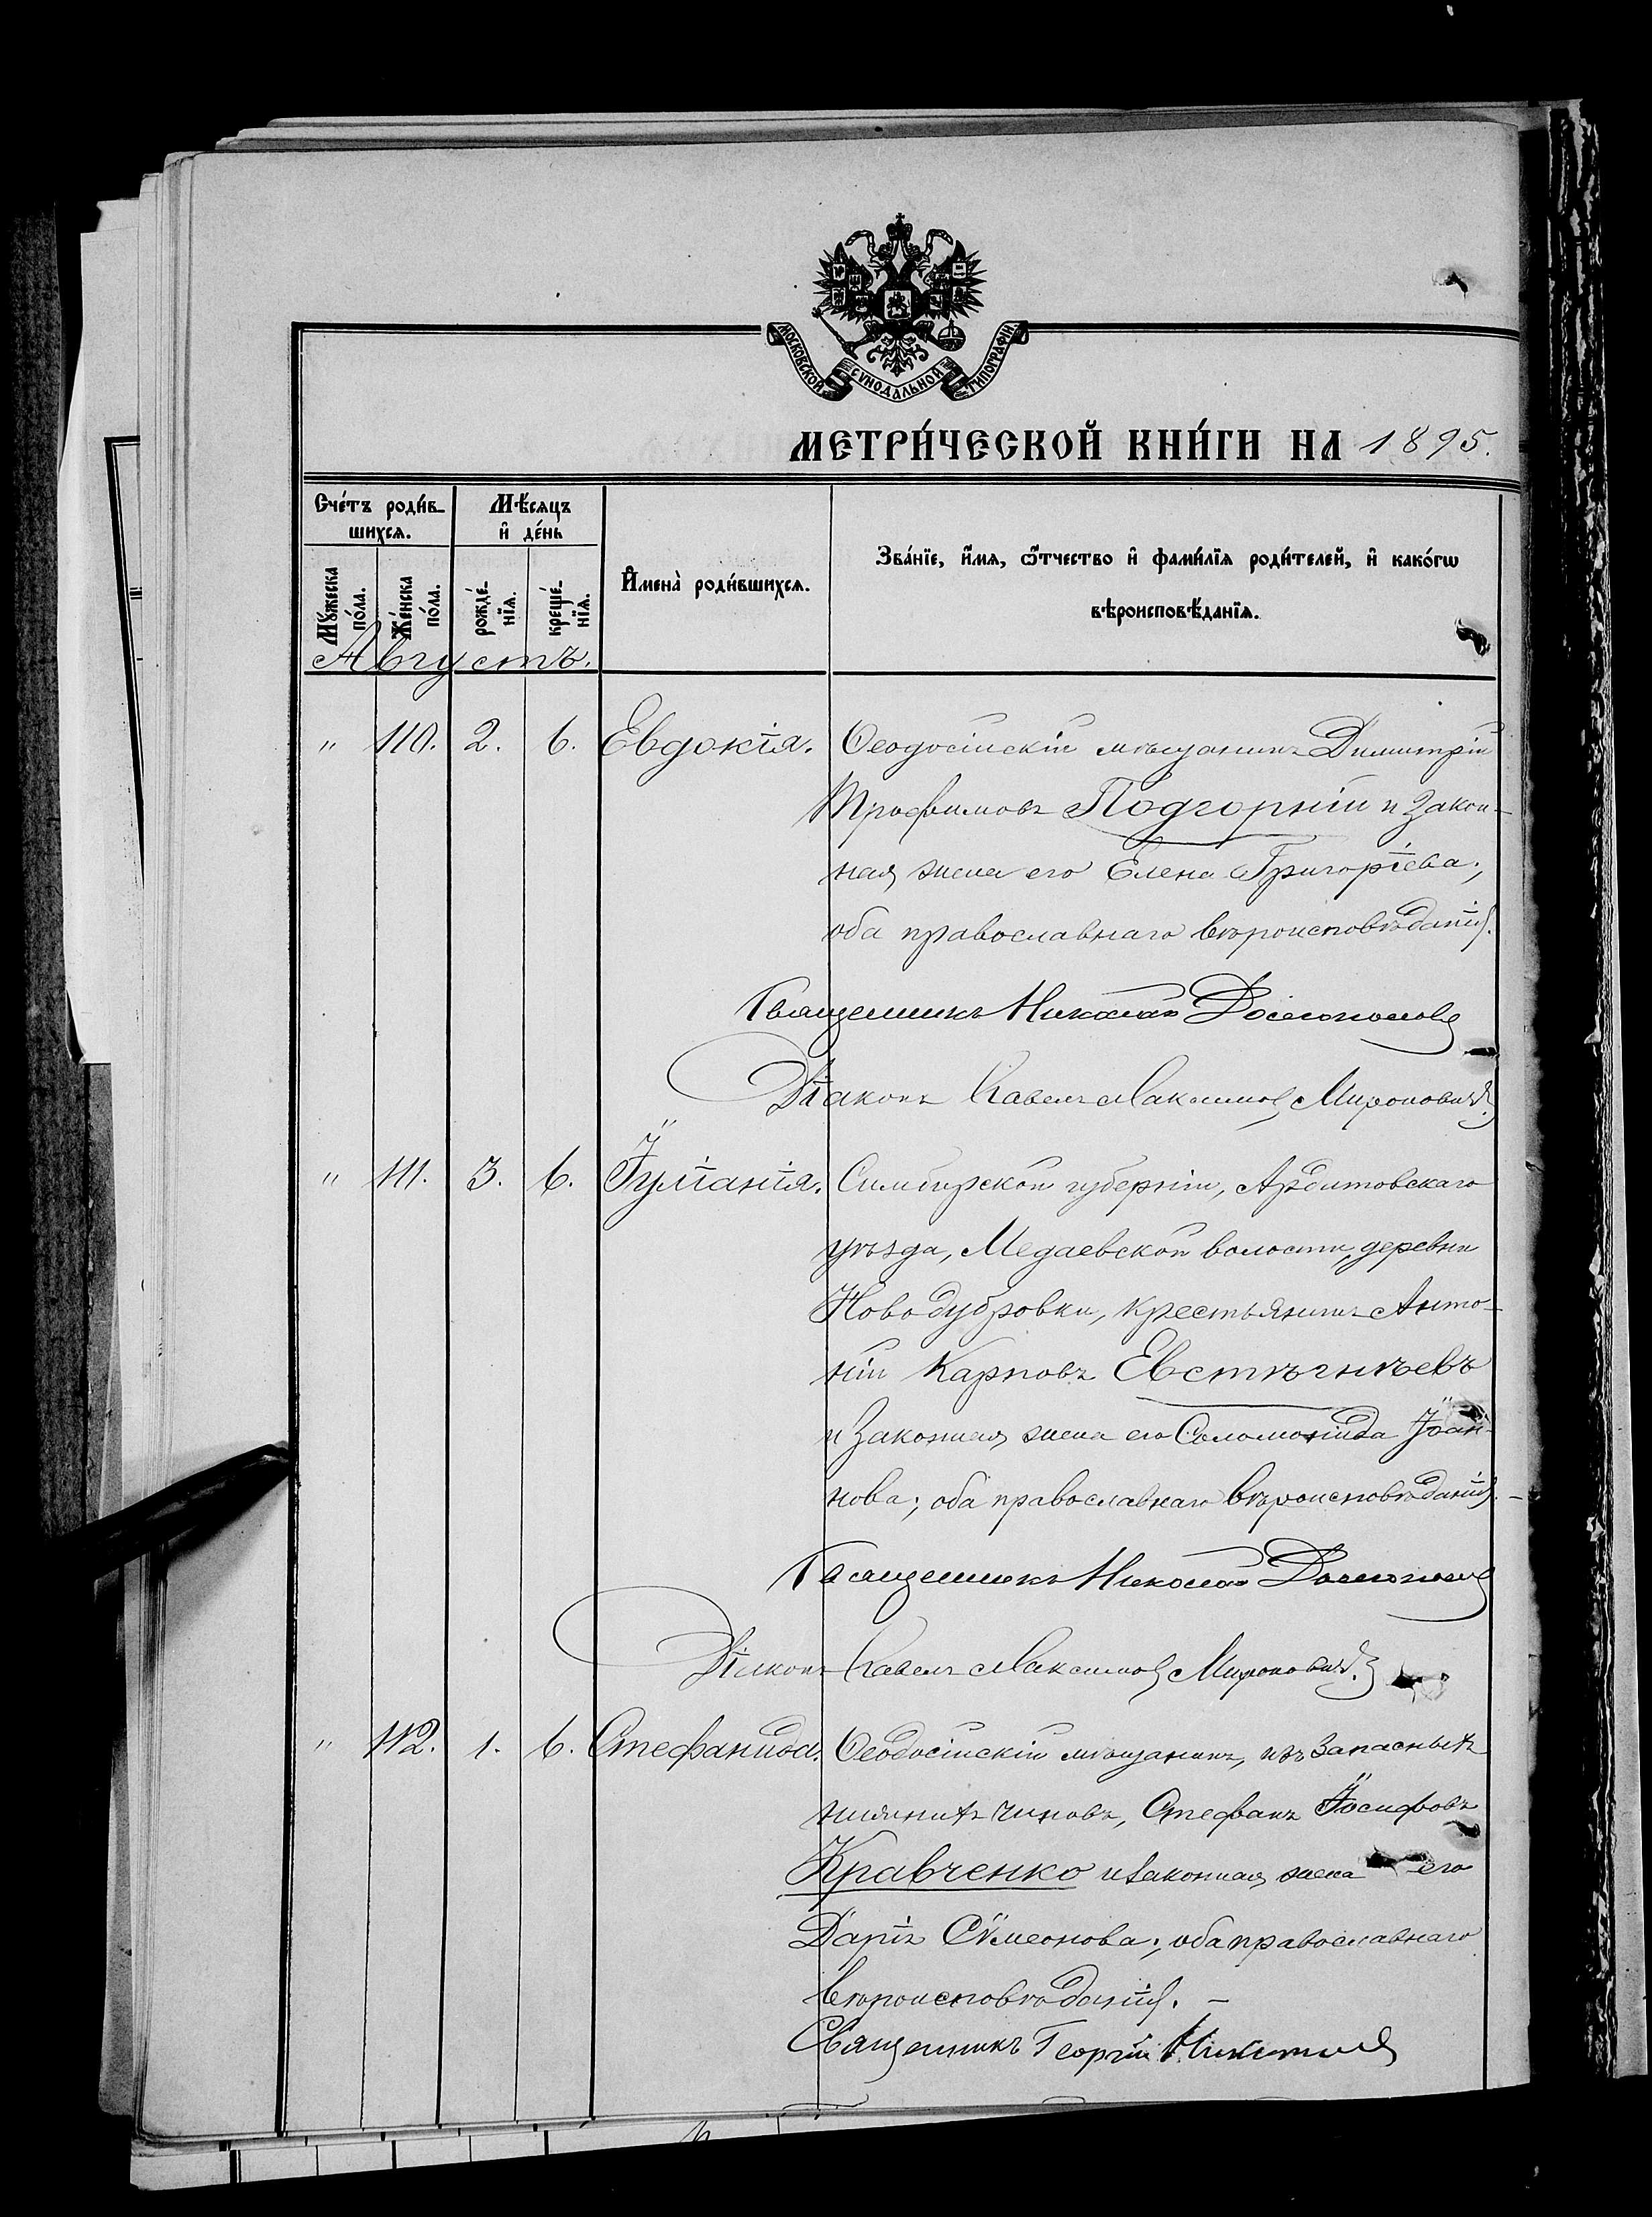 МОСКОВСКОЙ СѴНОДАЛЬНОЙ ТИПОГРАФІИ
МЕТРИ́ЧЕСКОЙ КНИ́ГИ НА 1895.
Сче́тъ роди́в-
шихсѧ.
Мѣ́сѧцъ
и҆ де́нь
Мꙋ́жеска
по́ла.
Же́нска
по́ла.
рожде́-
нїѧ.
креще́-
нїѧ.
И҆мена̀ роди́вшихсѧ.
Зва́нїе, и҆́мѧ, ѻ҆́тчество и҆ фами́лїѧ роди́телей, и҆ како́гѡ
вѣроисповѣ́данїѧ.
Августъ.
" 110. 2. 6. Евдокія. Ѳеодосійскій мѣщанинъ Димитрій
Трофимовъ Подгорній и закон-
ная жена его Елена Григоріева;
оба православнаго вѣроисповѣданія.
Священникъ Николай
Діаконъ Павелъ Максимов Миронович.
" 111. 3. 6. Іуліанія. Симбирской губерніи, Ардатовскаго
уѣзда, Медаевской волости, деревни
Ново дубровки, крестьянинъ Анто-
ній Карповъ Евстѣгнѣевъ
и законная жена его Соломонида Іоан-
нова; оба православнаго вѣроисповѣданія. –
Священникъ Николай
Діаконъ Павелъ Максимов Миронович.
" 112. 1. 6. Стефанида. Ѳеодосійскій мѣщанинъ, изъ запасныхъ
нижнихъ чиновъ, Стефанъ Іосифовъ
Кравченко и законная жена его
Дарія Сѵмеонова; оба православнаго
вѣроисповѣданія. –
Священникъ Георгій Никитин